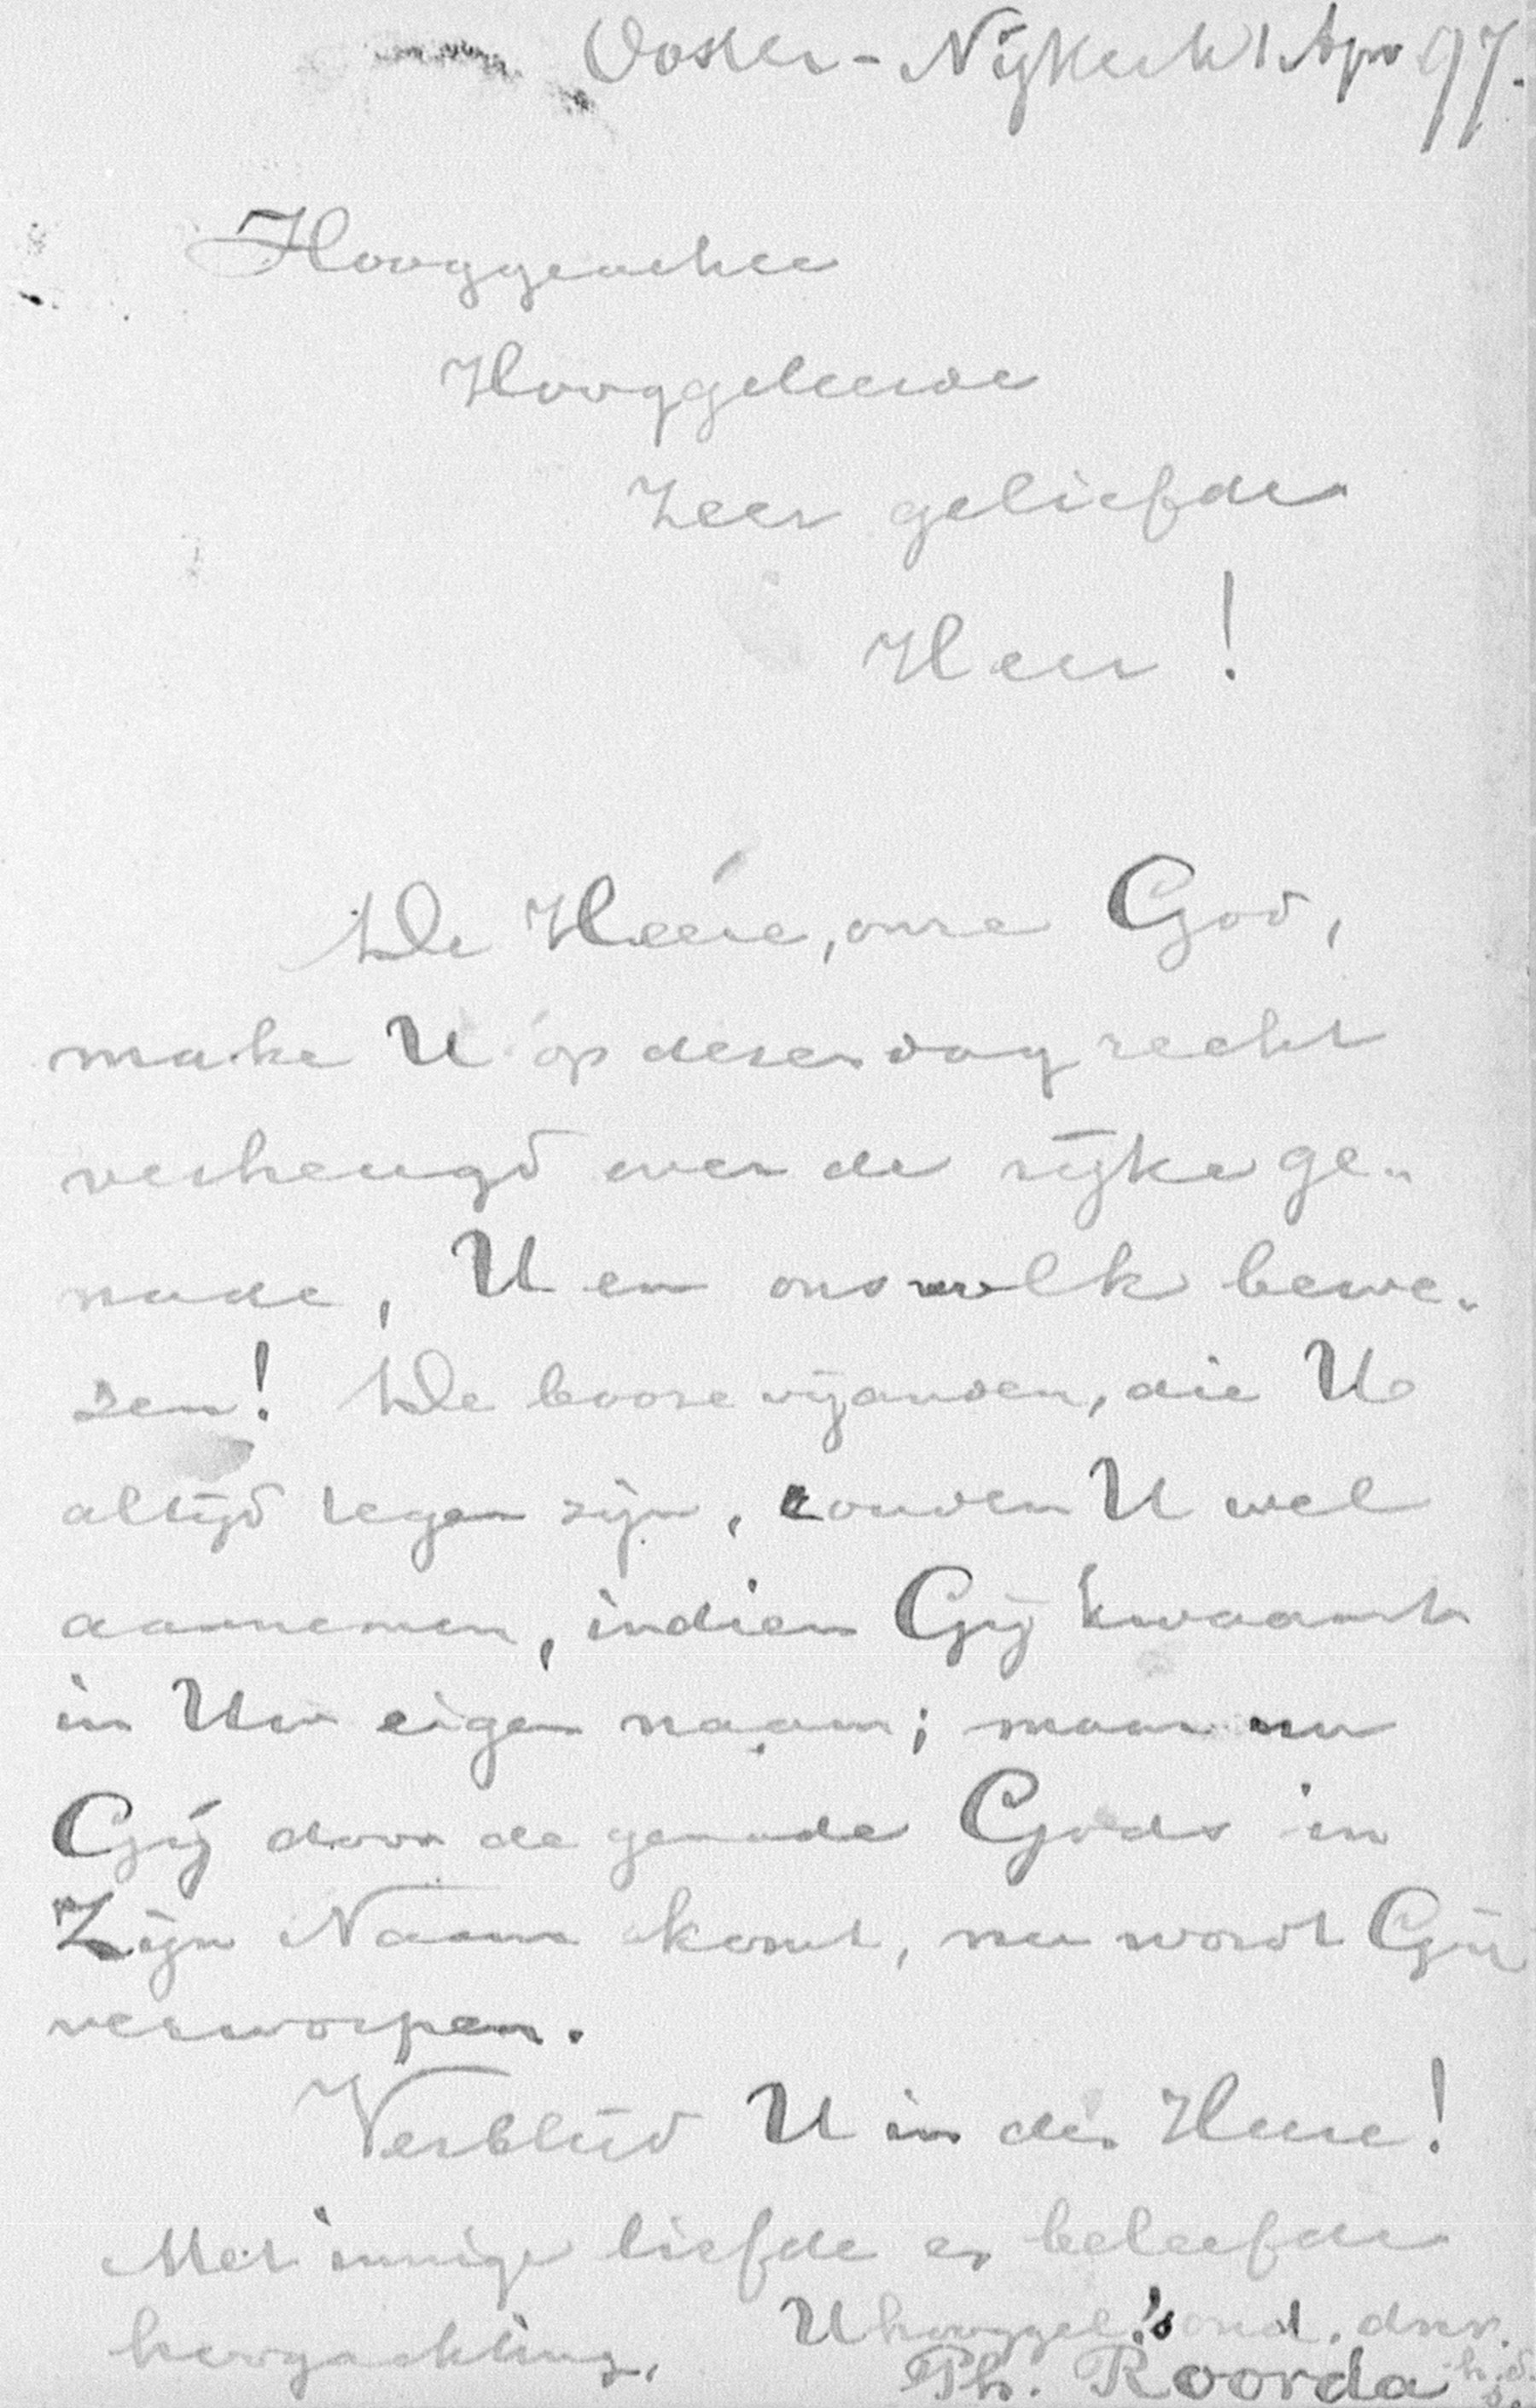 Ooster-Nijkerk 1 Apr 97.
Hooggeachte
Hooggeleerde
Zeer geliefde
Heer!
De Heere, onze God,
make U op dezen dag recht
verheugd over de rijke ge-
nade, U en ons volk bewe-
zen! De booze vijanden, die U
altijd tegen zijn, zouden U wel
aannemen, indien Gij kwaamt
in Uw eigen naam; maar nu
Gij door de genade Gods in
Zijn Naam komt, nu wordt Gij
verworpen.
Verblijd U in den Heere!
Met innige liefde en beleefde
hoogachting,
Uhooggel.'s ond. dnr.
Ph. Roorda